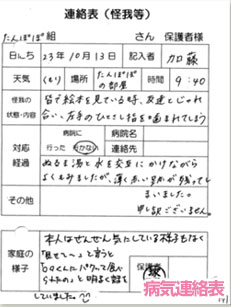 連絡表(怪我等)
たんぽぽ組 さん 保護者様
日にち 23年10月13日 記入者 加藤
天気 くもり 場所 たんぽぽの部屋 時間 9:40
怪我の状態・内容
皆で絵本を見ている時、友達とじゃれ
合い、左手のひとさし指を歯まれてしまう
対応経過
病院に 行った 行かない 病院名 連絡先
ぬるま湯と水を交互にかけながら
よくもみましたが、薄く赤い跡が残ってし
まいました。
その他
申し訳ございません。
家庭の様子
本人はぜんぜん気にしている様子もなく
「見せて~」と言うと
くんに パクって食べ
られたの」と明るく話を
していました。
保護者
病気連絡表